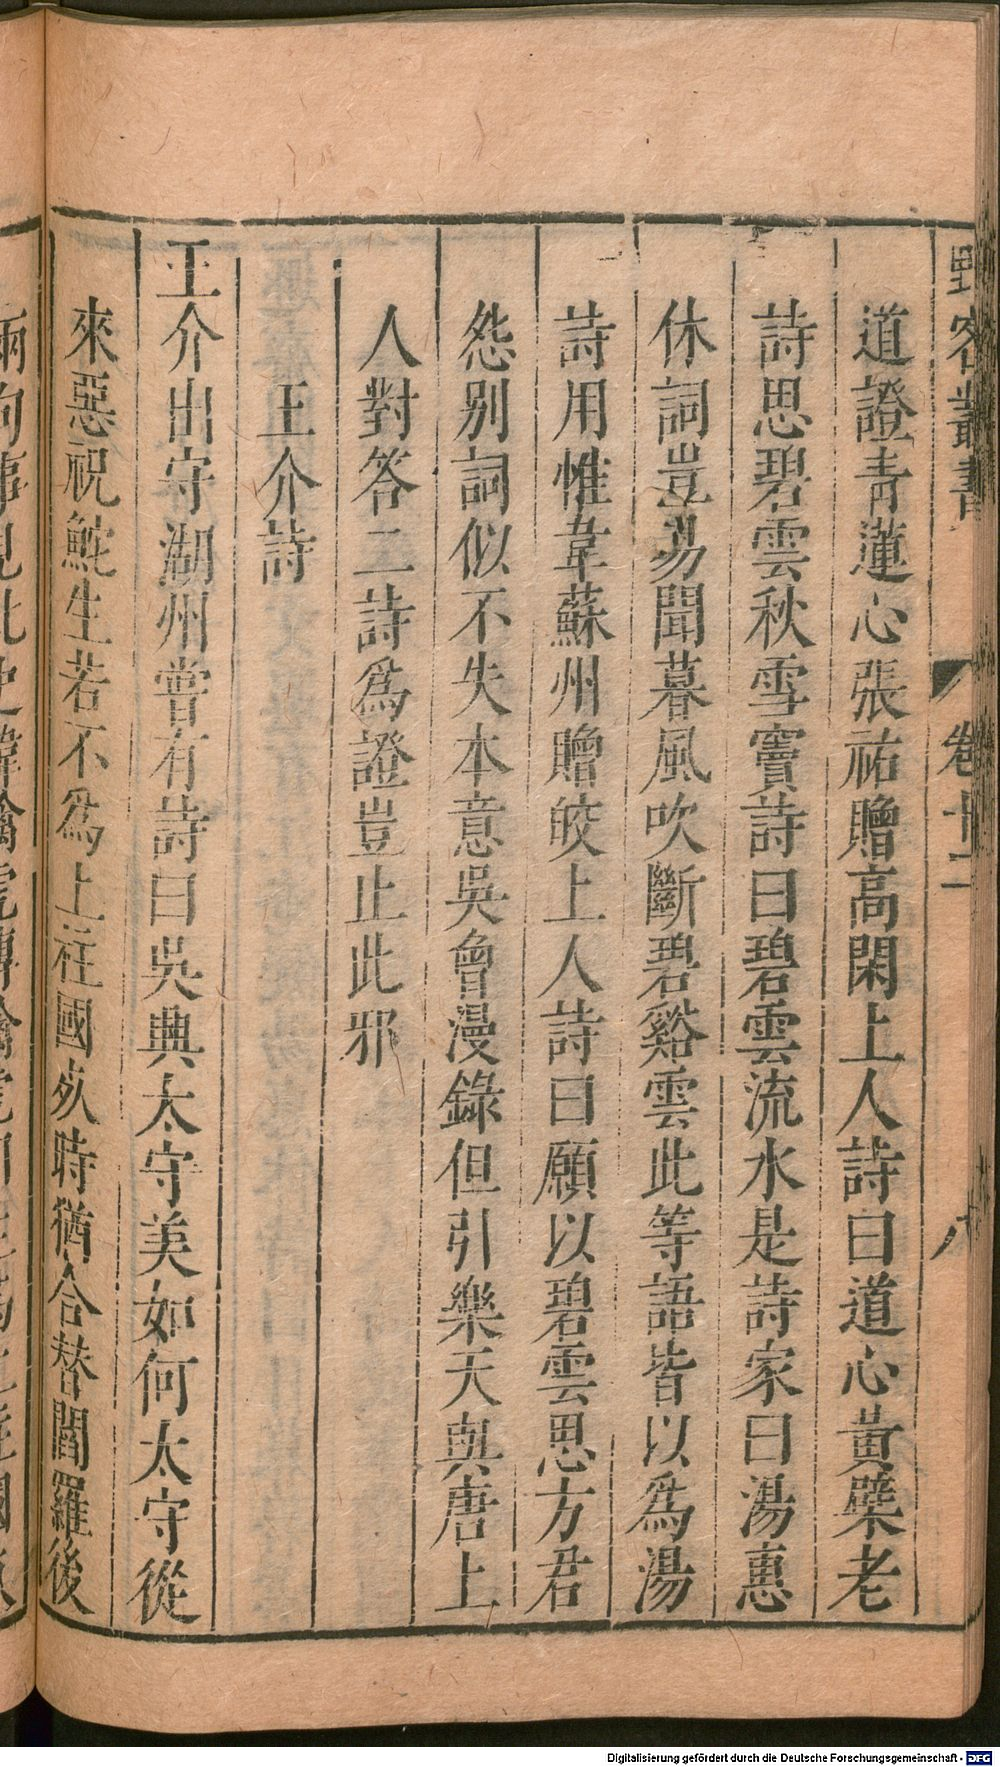 野客叢書 卷十二 八
道證青蓮心張祐贈高閑上人詩曰道心黃蘗老
詩思碧雲秋雪竇詩曰碧雲流水是詩家曰湯惠
休詞豈易聞暮風吹斷碧谿雲此等語皆以爲湯
詩用惟韋蘇州贈皎上人詩曰願以碧雲思方君
怨别詞似不失本意吳曾漫錄但引樂天與唐上
人對答二詩爲證豈止此邪
王介詩
王介出守湖州嘗有詩曰吳興太守美如何太守從
來惡祝鮀生若不爲上柱國死時猶合替閻羅後
兩句事見北史韓擒虎傳擒虎曰生爲上柱國死
Digitalisierung gefördert durch die Deutsche Forschungsgemeinschaft - DFG